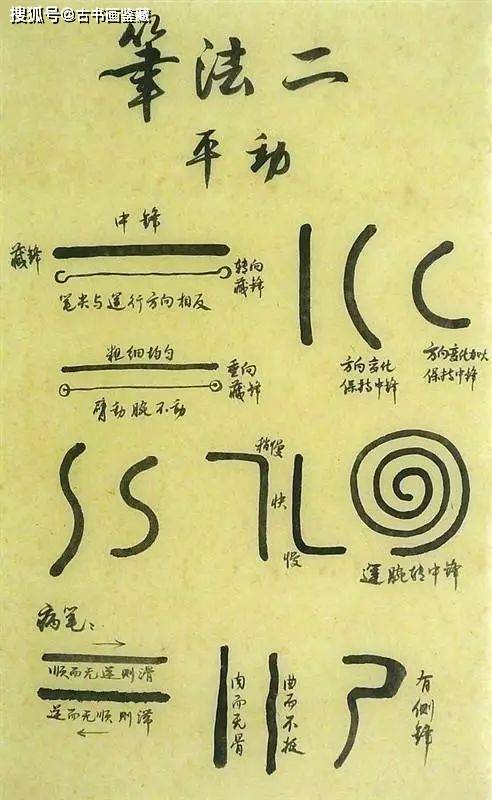 搜狐号@古书画鉴藏
筆法二
平動
中鋒
藏鋒
转向
藏鋒
笔尖与運行方向相反
粗细均匀
垂向
藏鋒
臂动腕不动
方向变化
保持中锋
方向变化加大
保持中锋
稍慢
快
慢
運腕转中锋
病笔：
顺而无逆则滑
逆而无顺则滞
肉而无骨
曲而不挺
有侧锋